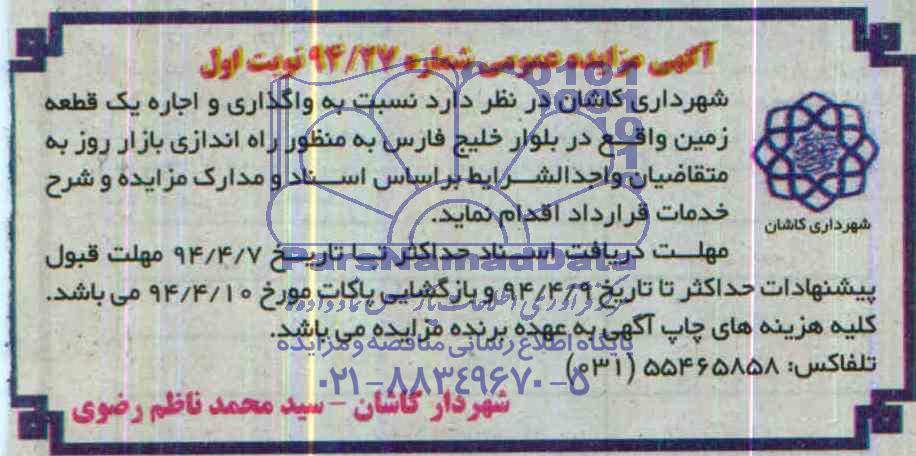 آگهی مزایده عمومی شماره ۹۴/۲۷ نوبت اول
شهرداری کاشان در نظر دارد نسبت به واگذاری و اجاره یک قطعه
زمین واقع در بلوار خلیج فارس به منظور راه اندازی بازار روز به
متقاضیان واجدالشرایط براساس اسناد و مدارک مزایده و شرح
خدمات قرارداد اقدام نماید.
شهرداری کاشان
مهلت دریافت اسناد حداکثر تا تاریخ ۹۴/۴/۷ مهلت قبول
پیشنهادات حداکثر تا تاریخ ۹۴/۴/۹ و بازگشایی پاکات مورخ ۹۴/۴/۱۰ می باشد.
کلیه هزینه های چاپ آگهی به عهده برنده مزایده می باشد.
تلفاکس: ۵۵۴۶۵۸۵۸ (۰۳۱)
شهردار کاشان - سید محمد ناظم رضوی
ParsNamadData
پایگاه اطلاع رسانی مناقصه و مزایده
۰۲۱-۸۸۳۴۹۶۷۰-۵